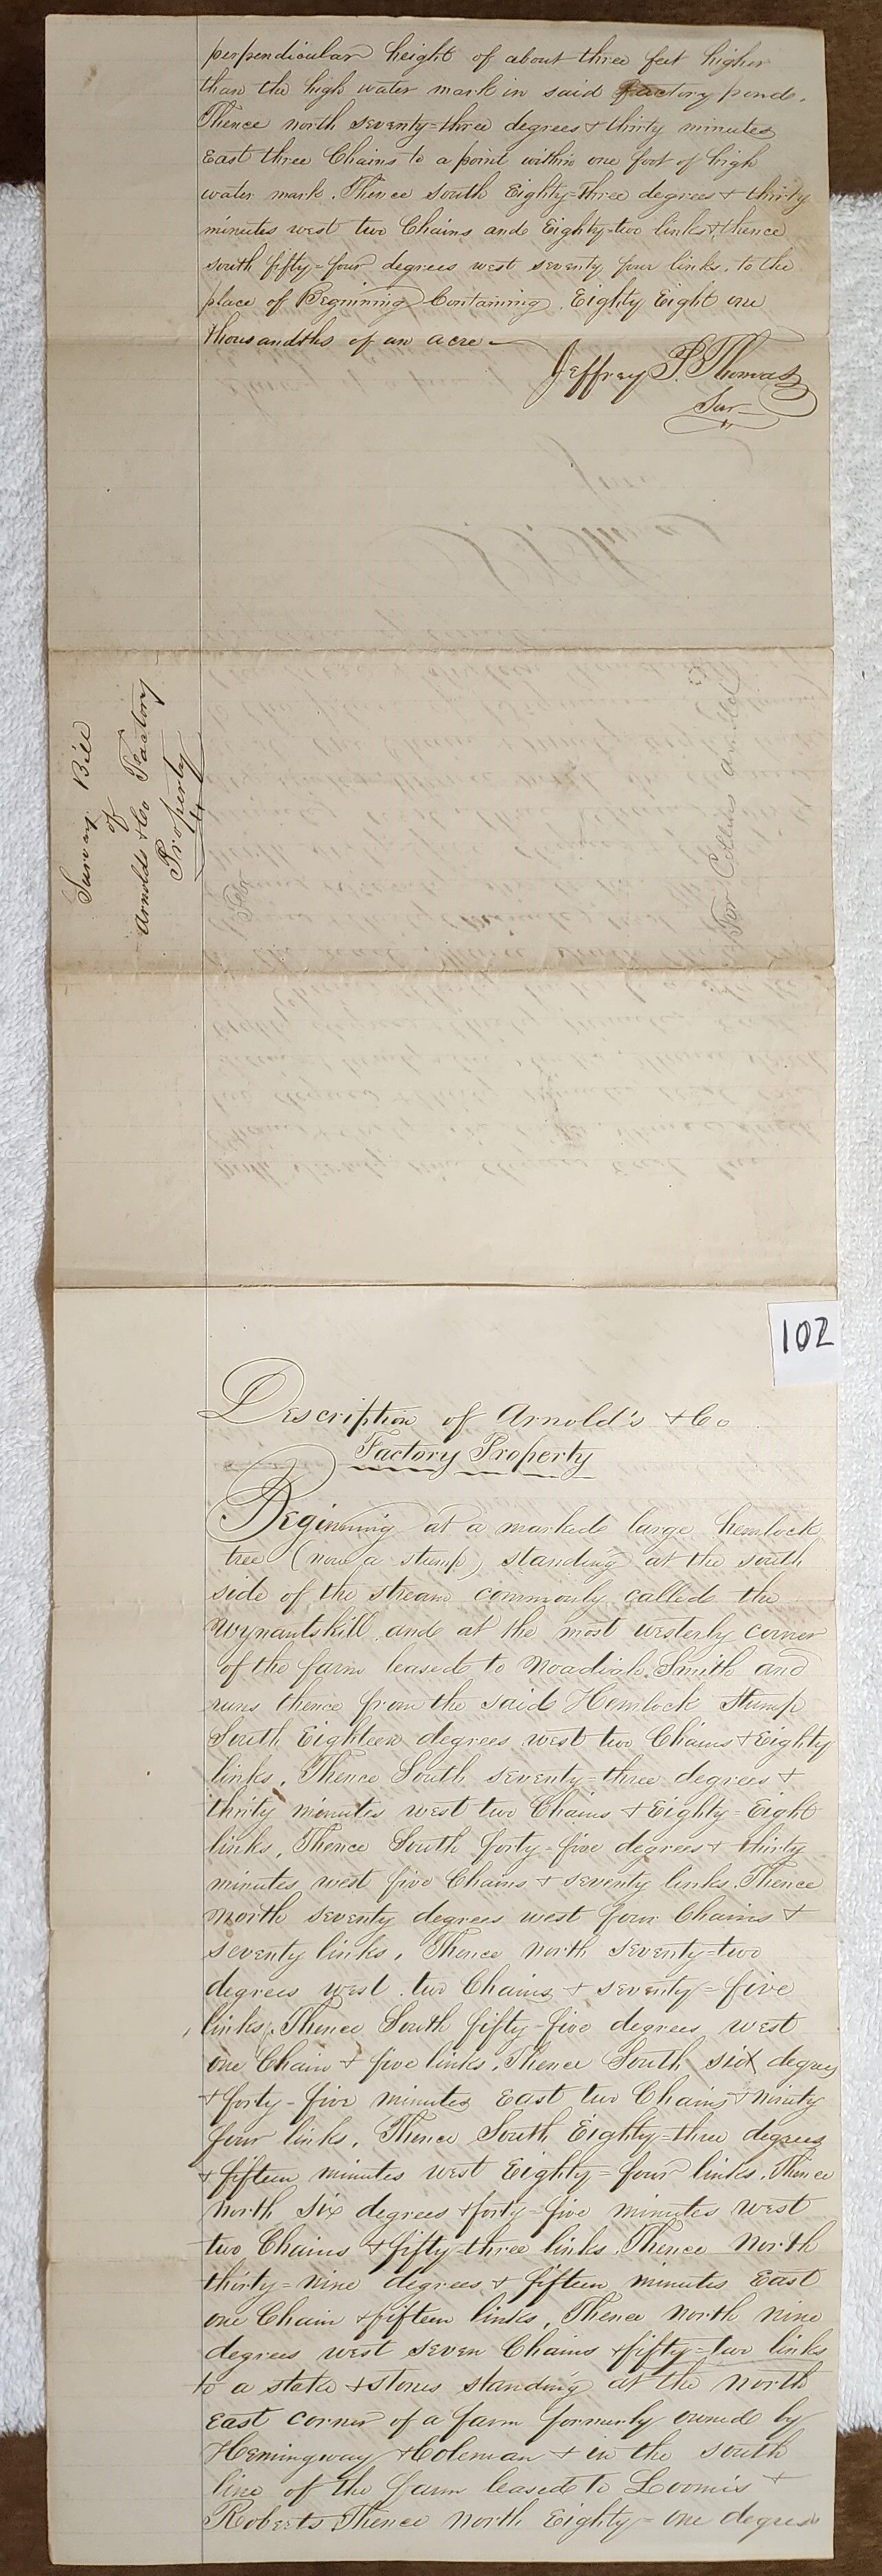 perpendicular height of about three feet higher
than the high water mark in said factory pond.
Thence north seventy=three degrees & thirty minutes
East three Chains to a point within one foot of high
water mark. Thence south Eighty=three degrees & thirty
minutes west two Chains and Eighty-two links & thence
south fifty=four degrees west seventy four links. to the
place of Begining Containing Eighty Eight one
thousandths of an acre
Jeffrey P. Thomas
Sur
Survey Bill
of
Arnolds & Co Factory
Property
For
For Collins Arnold
102
Description of Arnold's & Co
Factory Property
Beginning at a marked large hemlock
tree (now a stump) standing at the south
side of the stream commonly called the
Wynantskill and at the most westerly corner
of the farm leased to Noadiah Smith and
runs thence from the said Hemlock Stump
South Eighteen degrees west two Chains & Eighty
links, Thence South seventy=three degrees &
thrity minutes west two Chains & Eighty=Eight
links, Thence South forty=five degrees & thirty
minutes west five Chains & seventy links. Thence
North seventy degrees west four Chains &
seventy links, Thence north seventy=two
degrees west two Chains & seventy=five
links, Thence South fifty-five degrees west
one Chain & five links. Thence South six degrees
& forty-five minutes East two Chains & ninty
four links, Thence South Eighty=three degrees
& fifteen minutes west Eighty=four links. Thence
North six degrees & forty=five minutes west
two Chains & fifty-three links. Thence North
thirty=nine degrees & fifteen minutes East
one Chain & fifteen links, Thence North nine
degrees west seven Chains & fifty=two links
to a stake & stones standing at the North
East corner of a farm formerly owned by
Hemingway & Coleman & in the south
line of the farm leased to Loomis &
Roberts Thence North Eighty=one degrees